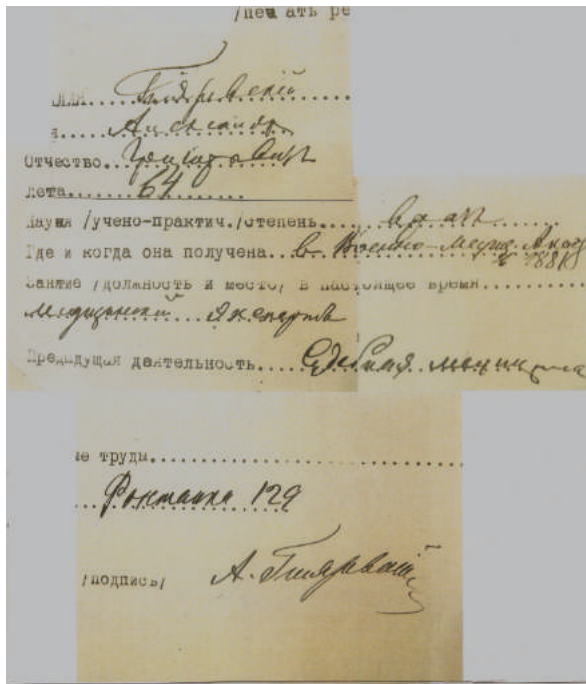 /печать ре
....
н.... Александр
Отчество.... Григорьевич
лета.... 64....
Научная /учено-практич./степень.... врач
Где и когда она получена.... в Военно-Медиц. Акад.
в 1881
Занятие /должность и место/ в настоящее время....
медицинский эксперт
Предыдущая деятельность.... Судебная медицина
ые труды....
Фонтанка 129
/подпись/ А.